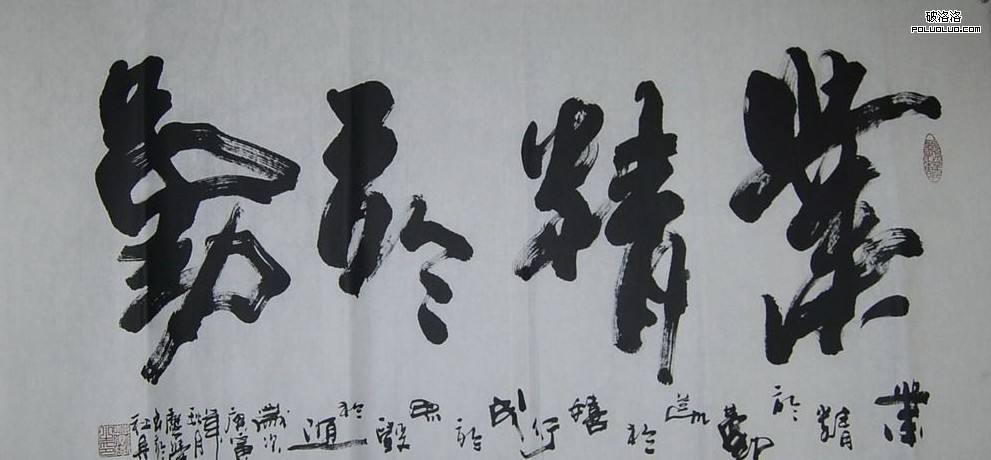 業精於勤
業精於勤荒於嬉行成於思毀於隨
歲次庚寅年秋月
破洛洛
POLUOLUO.COM